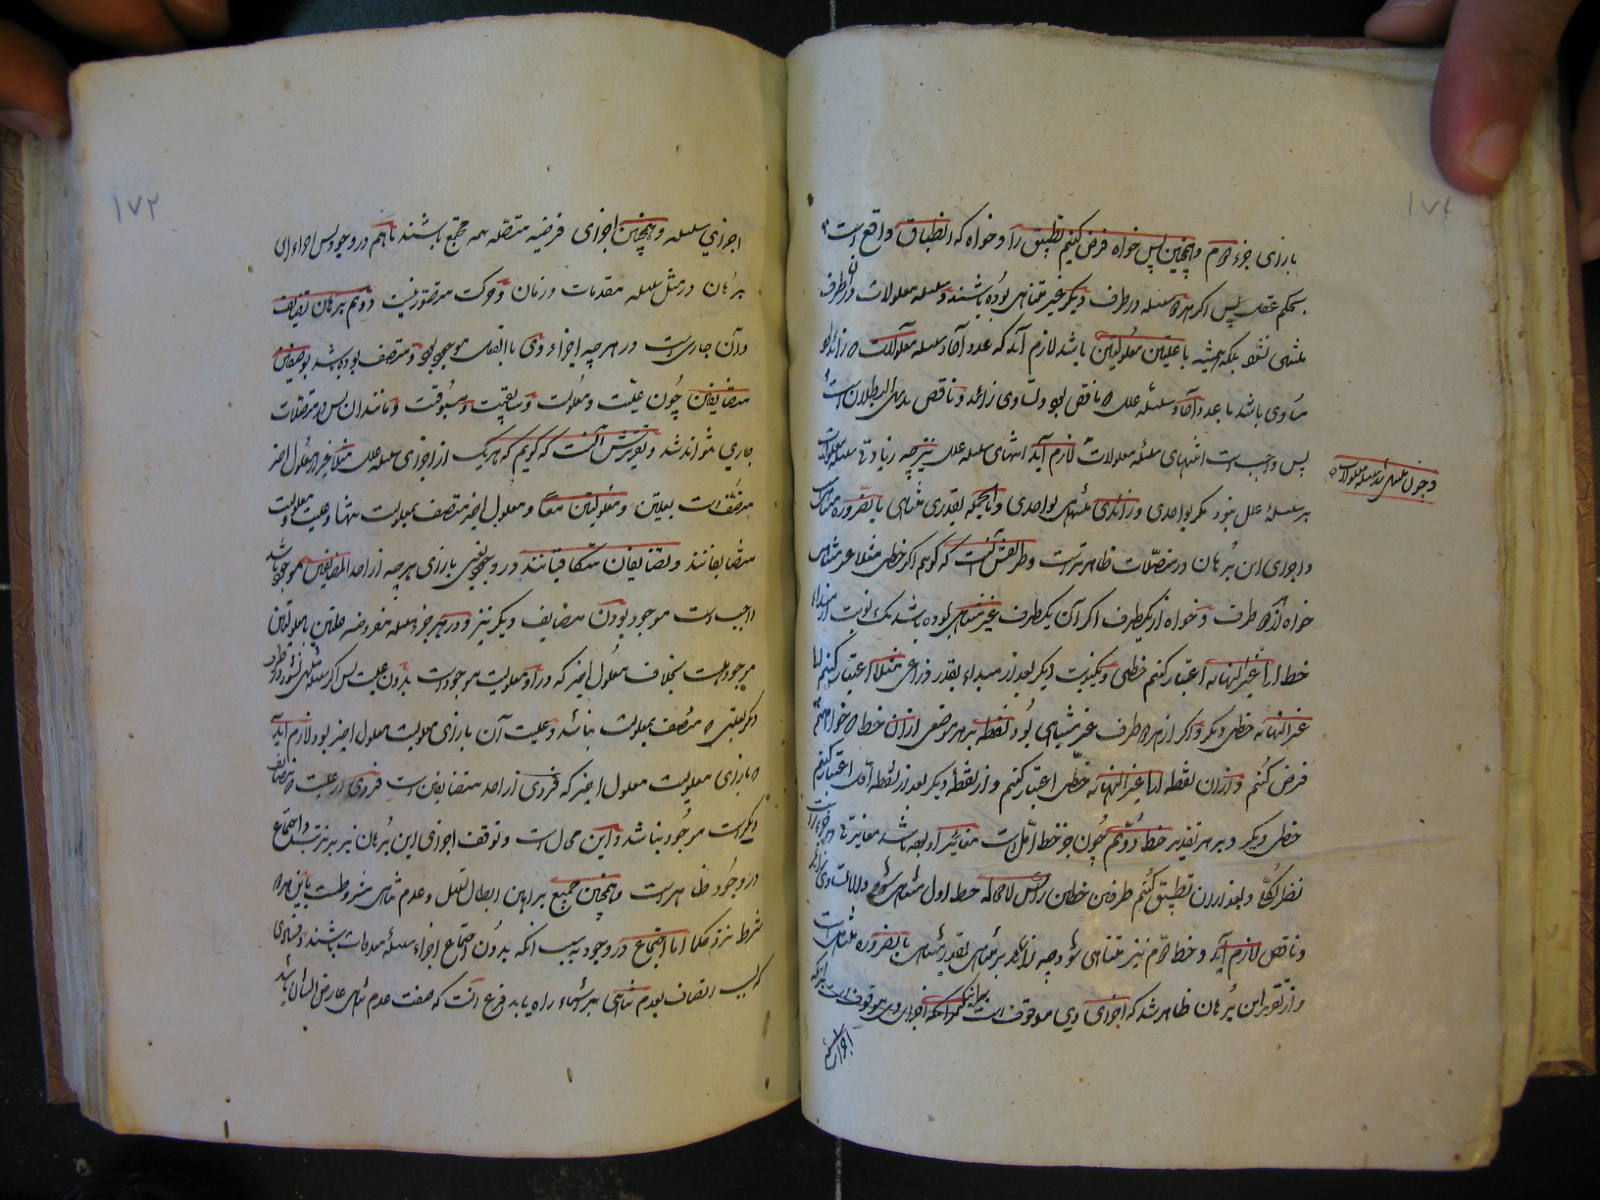 بازای جزء دوم و همچنین پس خواه فرض کنیم تطبیق را و خواه که انطباق واقع است
بحکم عقل پس اگر هر دو سلسله در طرف دیگر غیر متناهی بوده باشند و سلسله معلولات در ان طرف
منتهی نشود بلکه همیشه باعلیتین معلولیتین باشد لازم آید که عدد آحاد سلسله معلولات که زائد بود
مساوی باشد با عدد آحاد سلسله علل که ناقص بود و تساوی زائد و ناقص بدیهی البطلان است
پس واجب است انتهای سلسله معلولات لازم آید انتهای سلسله علل نیز چه زیادتی سلسله معلولات
و چون منتهی شد سلسله معلولات
بر سلسله علل نبود مگر بواحدی و زائدی متناهی بواحدی و بالجمله بقدری متناهی بالضروره متناهی است
و اجرای این برهان در متصلات ظاهرتر است و طریقش آنست که گوئیم اگر خطی مثلا غیر متناهی
خواه از هر دو طرف و خواه از یکطرف اگر آن یکطرف غیر متناهی بوده باشد یک نوبت از مبداء
خط الی غیر النهایه اعتبار کنیم خطی و یکنوبت دیگر بعد از مبداء بقدر ذراعی مثلا اعتبار کنیم الی
غیر النهایه خطی دیگر و اگر از هر دو طرف غیر متناهی بود نقطه بر هر موضعی از ان خط که خواهیم
فرض کنیم و از ان نقطه الی غیر النهایه خطی اعتبار کنیم و از نقطه دیگر بعد از نقطه اول اعتبار کنیم
خطی دیگر و بر هر تقدیر خط دوم چون جزء خط اول است مغایر او بوده باشد مغایرت جزء
نظر بکل و بعد از ان تطبیق کنیم طرفین خطین را پس لامحاله خط اول متناهی شود و الا تساوی زائد
و ناقص لازم آید و خط دوم نیز متناهی شود چه زائد بر متناهی بقدر متناهی بالضروره متناهی است
و از تقریر این برهان ظاهر شد که اجرای وی موقوف است بر اینکه اجزای وی موقوف است بر اینکه
اجزای
۱۷۲
اجزای سلسله و همچنین اجزای فرضیه متصله همه مجتمع باشند باهم در وجود پس اجراء این
برهان در مثل سلسله معدات و زمان و حرکت متصور نیست دوم برهان تضایف
و آن جاریست در هر چه اجزاء وی بالفعل موجود بود و متصف بوده باشد بوصفین
متضایفین چون علیت و معلولیت و سابقیت و مسبوقیت و مانند ان پس در متصلات
جاری نتواند شد و تقریرش آنست که گوئیم که هر یک از اجزای سلسله علل مثلا غیر از معلول اخیر
متصف است بعلیتین و معلولیتین معا و معلول اخیر متصف بمعلولیت تنها و علیت و معلولیت
متضایفانند و متضایفان متکافیانند در وجود یعنی بازای هر چه از احد المتضایفین موجود باشد
واجب است موجود بودن متضایف دیگر نیز و در هر جزء سلسله مفروضه علیتین با معلولیتین
موجود است بخلاف معلول اخیر که در او معلولیت موجود است بدون علیت پس اگر سلسله منتهی نشود در طرف
دیگر بعلتی که متصف بمعلولیت نباشد و علیت آن بازای معلولیت معلول اخیر بود لازم آید
که بازای معلولیت معلول اخیر که فردی از احد متضایفین است فردی از علیت که متضایف
دیگر است موجود نباشد و این محال است و توقف اجرای این برهان نیز بر ترتب و اجتماع
در وجود ظاهر است و همچنین جمیع براهین ابطال تسلسل و عدم تناهی مشروط است باین هر دو
شرط نزد حکما اما اجتماع در وجود بسبب انکه بدون اجتماع اجزاء سلسله معدات باشند
که لیسه اتصاف بعدم تناهی بر اشیاء راه یابد فرع آنست که صفت عدم تناهی عارض انسان باشد